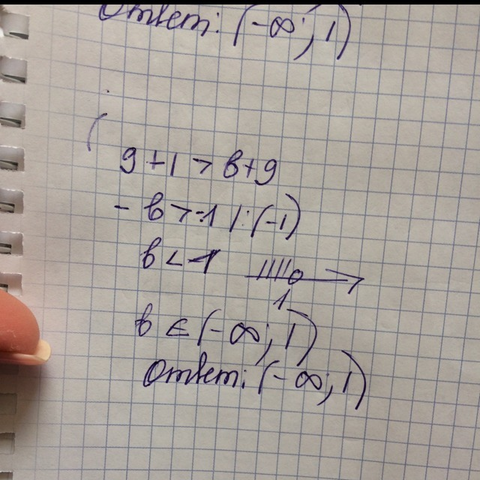 Ответ: (-∞; 1)
9+1 > b+9
- b > -1 | : (-1)
b < 1
1
b ∈ (-∞; 1)
Ответ: (-∞; 1)